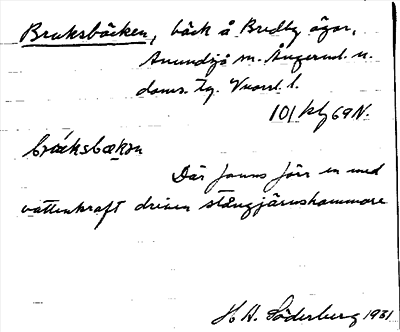 Bruksbäcken, bäck å Bredby ägor,
Anundsjö sn. Ångerml. n.
doms. tg. Vnorrl. l.
101 kbl 69 N.
Där fanns förr en med
vattenkraft driven stångjärnshammare
H. A. Söderberg 1931